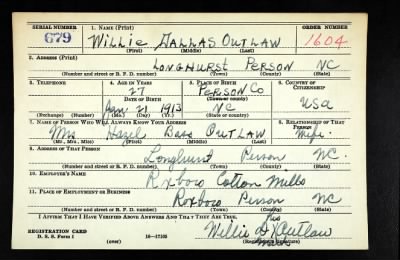 SERIAL NUMBER 1. NAME (Print) ORDER NUMBER
679 WILLIE DALLAS OUTLAW 1604
(First) (Middle) (Last)
2. ADDRESS (Print)
LONGHURST PERSON NC
(Number and street or R. F. D. number) (Town) (County) (State)
3. TELEPHONE 4. AGE IN YEARS 5. PLACE OF BIRTH 6. COUNTRY OF CITIZENSHIP
27 PERSON CO
DATE OF BIRTH (Town or county)
Jan. 21 1913 NC USA
(Exchange) (Number) (Mo.) (Day) (Yr.) (State or country)
7. NAME OF PERSON WHO WILL ALWAYS KNOW YOUR ADDRESS 8. RELATIONSHIP OF THAT PERSON
Mrs Hazel Bass OUTLAW Wife.
(Mr., Mrs., Miss) (First) (Middle) (Last)
9. ADDRESS OF THAT PERSON
Longhurst Person NC.
(Number and street or R. F. D. number) (Town) (County) (State)
10. EMPLOYER'S NAME
Roxboro Cotton Mills
11. PLACE OF EMPLOYMENT OR BUSINESS
Roxboro Person NC
(Number and street or R. F. D. number) (Town) (County) (State)
I AFFIRM THAT I HAVE VERIFIED ABOVE ANSWERS AND THAT THEY ARE TRUE.
His
REGISTRATION CARD Willie D. X Outlaw
D. S. S. Form 1 (over) 16-17105 (Registrant's signature)
Mark